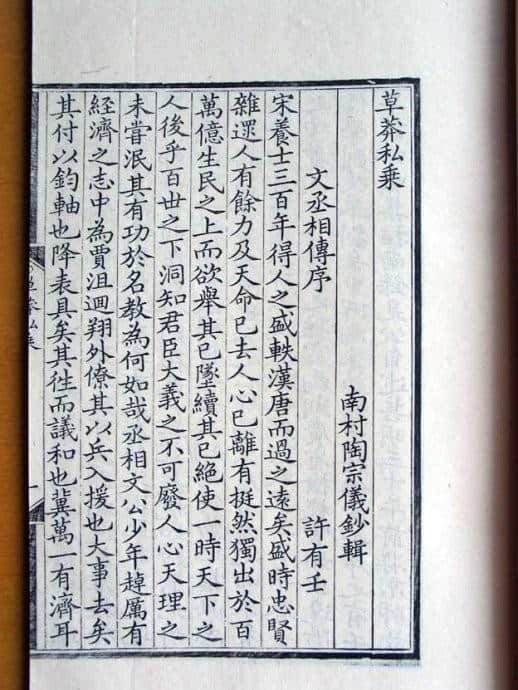 草莽私乘
南村陶宗儀鈔輯
文丞相傳序
許有壬
宋養士三百年得人之盛軼漢唐而過之遠矣盛時忠賢
雜遝人有餘力及天命已去人心已離有挺然獨出於百
萬億生民之上而欲舉其已墜續其已絕使一時天下之
人後乎百世之下洞知君臣大義之不可廢人心天理之
未嘗泯其有功於名教為何如哉丞相文公少年趠厲有
經濟之志中為賈沮迴翔外僚其以兵入援也大事去矣
其付以鈞軸也降表具矣其往而議和也冀萬一有濟耳
草莽私乘
一